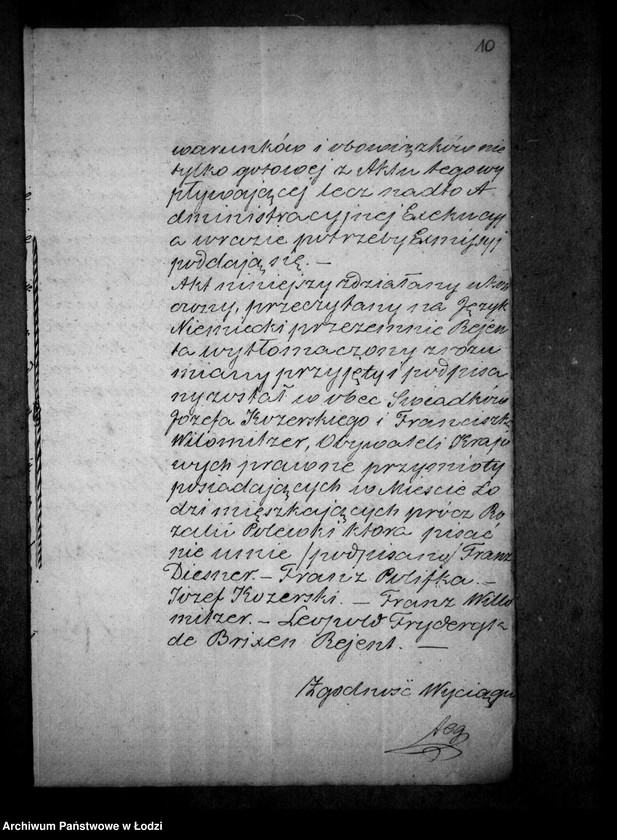 10
warunków i obowiązków nie
tylko gotowej z Aktu tego wy
pływającej lecz nadto A
dministracyjnej Exekucyj
a w razie potrzeby Exmissyj
poddają się. —
Akt niniejszy zdziałany ukoń
czony, przeczytany na Język
Niemiecki przezemnie Rejen
ta wytłomaczony zrozu
miany przyjęty i podpisa
ny został w obec Swiadków
Józefa Kozerskiego i Franciszka
Willomitzer, Obywateli Krajo
wych prawne przymioty
posiadających w Mieście Ło
dzi mieszkających prócz Ro
zalii Polewski która pisać
nie umie /podpisany/ Franz
Diesner. — Franz Polifka. —
Jozef Kozerski. — Franz Willo
mitzer. — Leopold Fryderyk
de Brixen Rejent. —
Zgodność Wyciągu
Archiwum Państwowe w Łodzi